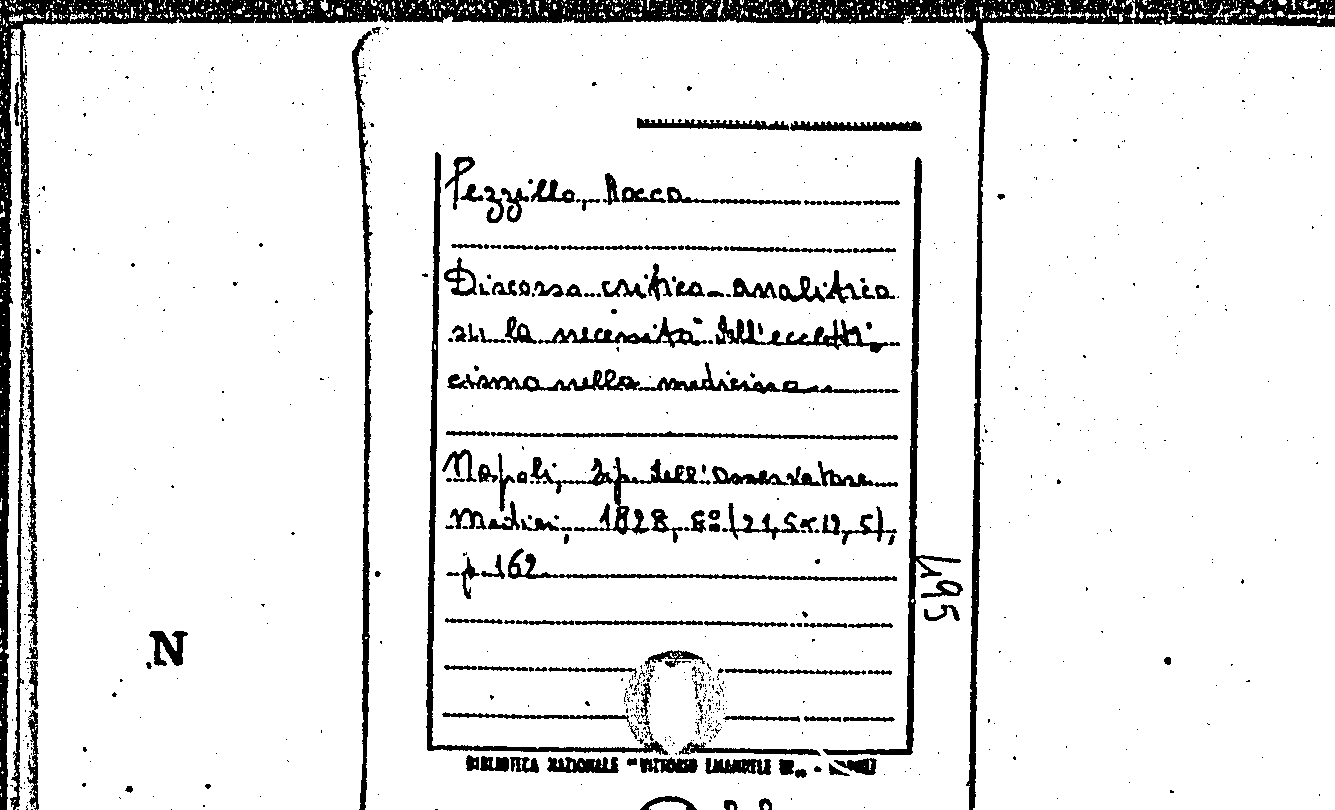 Pezzillo, Rocco
Discorso critico-analitico
su la necessità dell'ecclètti-
cismo nella medicina
Napoli, Tip. dell'Osservatore
Medico, 1828, 8º (21,5x12,5),
p. 162
495
N
BIBLIOTECA NAZIONALE "VITTORIO EMANUELE III" - NAPOLI